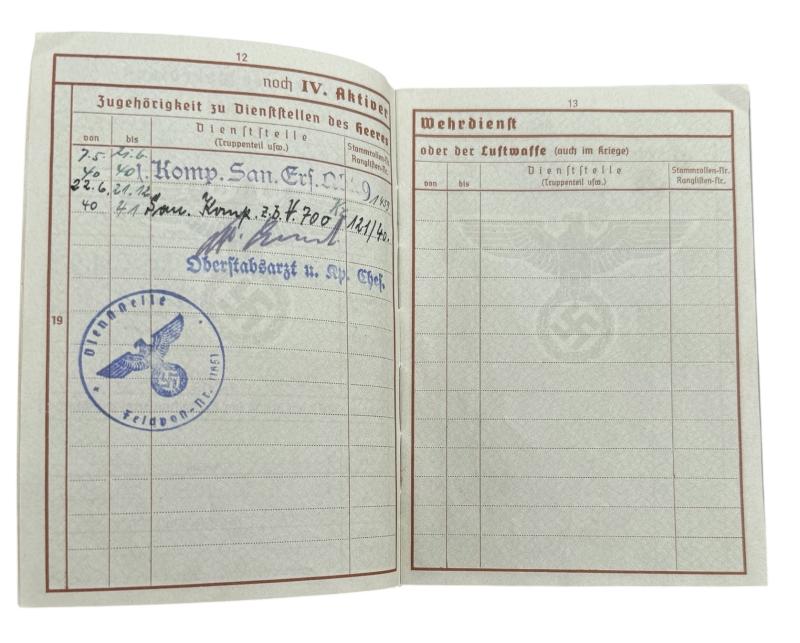 12
noch IV. Aktiver
Zugehörigkeit zu Dienststellen des Heeres
von bis Dienststelle (Truppenteil usw.) Stammrollen-Nr. Ranglisten-Nr.
7.5. 21.6.
40 40 1. Komp. San. Ers. 9
22.6. 21.12.
40 41 San. Komp. z.b.V. 700 121/40.
Oberstabsarzt u. Kp. Chef.
19
Dienststelle
Feldpost-Nr.
13
Wehrdienst
oder der Luftwaffe (auch im Kriege)
von bis Dienststelle (Truppenteil usw.) Stammrollen-Nr. Ranglisten-Nr.